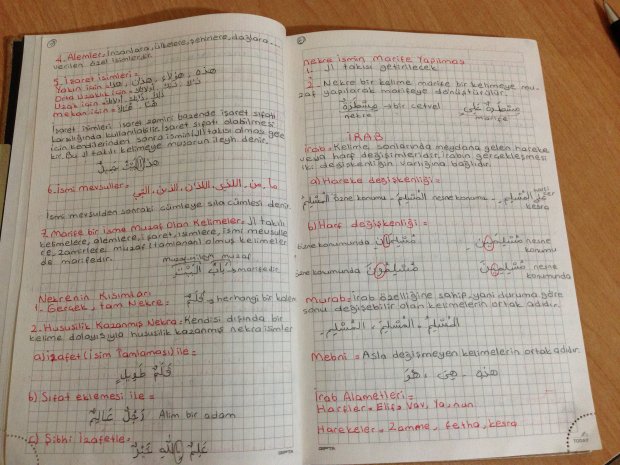 4. Alemler = İnsanlara, ülkelere, şehirlere, dağlara...
verilen özel isimlerdir.
5. İşaret isimleri =
Yakın için = هذه ، هؤلاء ، هذان ، هذا
Orta uzaklık için =
Uzak için =
Mekan için =
İşaret isimleri işaret zamiri bazende işaret sıfatı
karşılığında kullanılabilir. İşaret sıfatı olabilmesi
için kendilerinden sonra ismin ال takısı alması gere
kir. Bu ال takılı kelimeye muşarun ileyh denir.
هذا البيت جميل
6. İsmi mevsuller = ما ، من ، اللذي ، اللذان ، الذين ، التي
İsmi mevsulden sonraki cümleye sıla cümlesi denir.
7. Marife bir isme Muzaf Olan Kelimeler = ال takılı
kelimelere, alemlere, işaret isimlere, ismi mevsulle
re, zamirlere muzaf (tamlanan) olmuş kelimeler
de marifedir.
muzafun ileyh muzaf
بَابُ الْبَيْتِ → marifedir.
Nekrenin Kısımları
1. Gerçek, tam Nekre = قَلَمٌ → herhangi bir kalem
2. Hususilik Kazanmış Nekra = Kendisi dışında bir
kelime dolayısıyla hususilik kazanmış nekra isimler
a) izafet (isim Tamlaması) ile =
قَلَمُ طَوِيلٍ
b) Sıfat eklemesi ile =
رَجُلٌ عَالِمٌ Alim bir adam
c) Şibhi İzafetle =
Nekre ismin Marife Yapılması
1- ال takısı getirilecek
2- Nekre bir kelime marife bir kelimeye mu
zaf yapılarak marifeye dönüştürülür.
مِسْطَرَةٌ → bir cetvel مِسْطَرَةُ عَلِيٍّ
nekre marife
İRAB
İrab = Kelime sonlarında meydana gelen hareke
veya harf değişimleridir. İrabın gerçekleşmesi
iki değişkenliğin varlığına bağlıdır.
a) Hareke değişkenliği =
الْمُسْلِمُ özne konumu الْمُسْلِمَ nesne konumu الْمُسْلِمِ harf-i cer
kesra
b) Harf değişkenliği =
özne konumunda مُسْلِمَانِ مُسْلِمَيْنِ nesne
konumu
özne konumunda مُسْلِمُونَ مُسْلِمِينَ nesne
konumunda
Murab = İrab özelliğine sahip, yani duruma göre
sonu değişebilir olan kelimelerin ortak adıdır.
الْمُسْلِمُ ، الْمُسْلِمَ ، الْمُسْلِمِ
Mebni = Asla değişmeyen kelimelerin ortak adıdır.
هذه ، هِيَ ، هُوَ
İrab Alametleri =
Harfler = Elif, Vav, Ya, nun
Harekeler = Zamme, fetha, kesra
GIPTA
GIPTA
TODAY